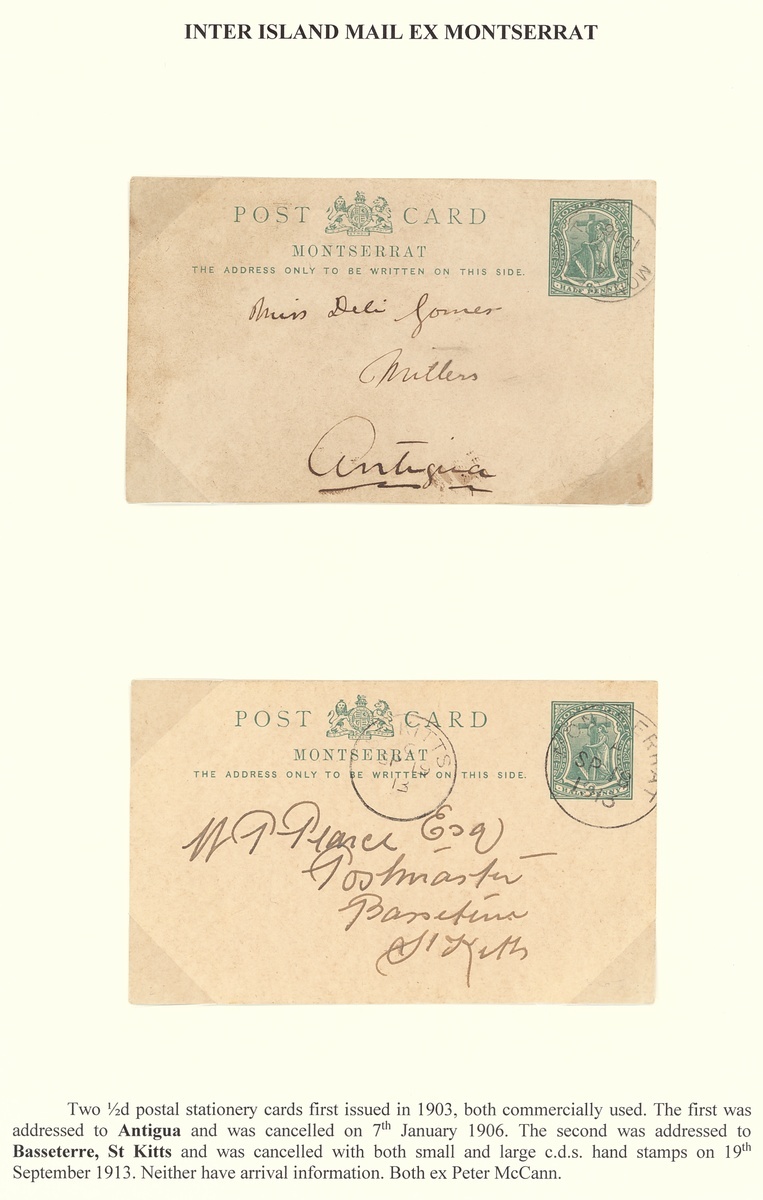 INTER ISLAND MAIL EX MONTSERRAT
POST CARD
MONTSERRAT
THE ADDRESS ONLY TO BE WRITTEN ON THIS SIDE.
MONTSERRAT
HALF PENNY
Miss Deli Gomer
Millers
Antigua
POST CARD
MONTSERRAT
THE ADDRESS ONLY TO BE WRITTEN ON THIS SIDE.
KITTS
SP 19
13
MONTSERRAT
SP 19
1913
HALF PENNY
W P Pearce Esq
Postmaster
Basseterre
St Kitts
Two ½d postal stationery cards first issued in 1903, both commercially used. The first was
addressed to Antigua and was cancelled on 7th January 1906. The second was addressed to
Basseterre, St Kitts and was cancelled with both small and large c.d.s. hand stamps on 19th
September 1913. Neither have arrival information. Both ex Peter McCann.